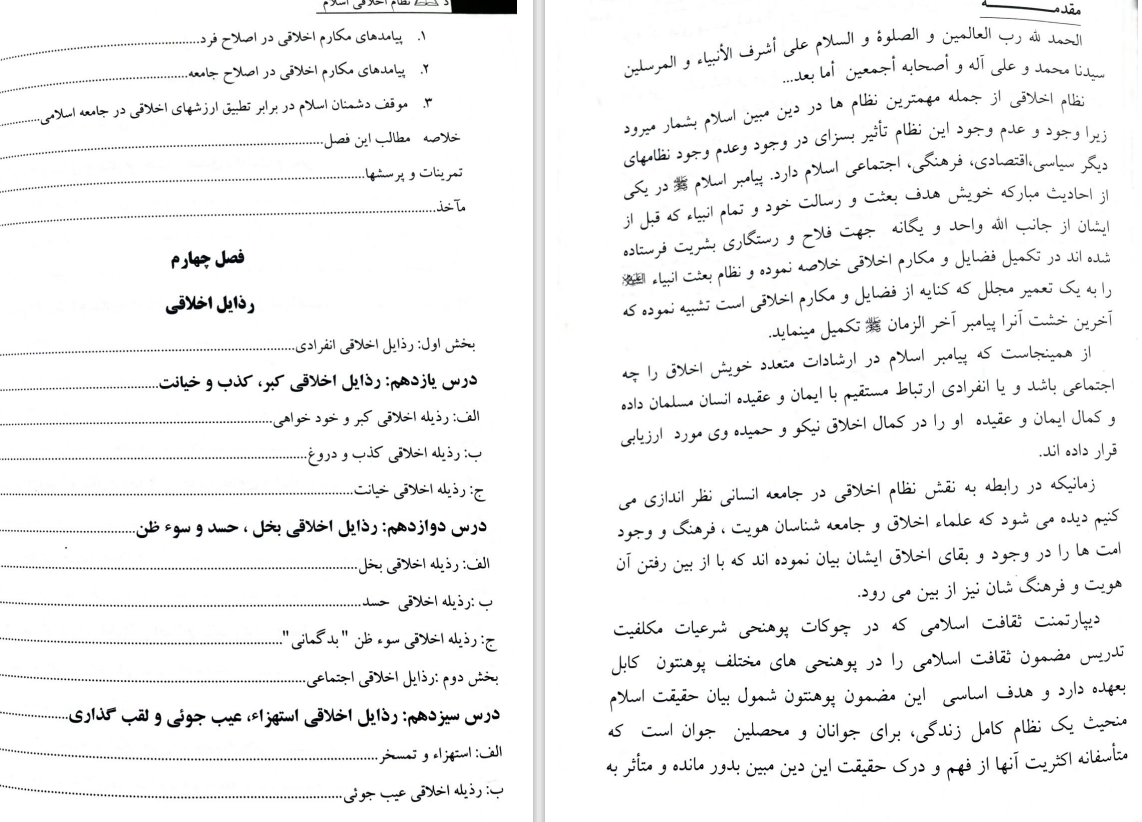 مقدمـــــــــه
الحمد لله رب العالمین و الصلوة و السلام علی أشرف الأنبیاء و المرسلین
سیدنا محمد و علی آله و أصحابه أجمعین أما بعد...
نظام اخلاقی از جمله مهمترین نظام ها در دین مبین اسلام بشمار میرود
زیرا وجود و عدم وجود این نظام تأثیر بسزای در وجود وعدم وجود نظامهای
دیگر سیاسی،اقتصادی، فرهنگی، اجتماعی اسلام دارد. پیامبر اسلام ﷺ در یکی
از احادیث مبارکه خویش هدف بعثت و رسالت خود و تمام انبیاء که قبل از
ایشان از جانب الله واحد و یگانه جهت فلاح و رستگاری بشریت فرستاده
شده اند در تکمیل فضایل و مکارم اخلاقی خلاصه نموده و نظام بعثت انبیاء
را به یک تعمیر مجلل که کنایه از فضایل و مکارم اخلاقی است تشبیه نموده که
آخرین خشت آنرا پیامبر آخر الزمان ﷺ تکمیل مینماید.
از همینجاست که پیامبر اسلام در ارشادات متعدد خویش اخلاق را چه
اجتماعی باشد و یا انفرادی ارتباط مستقیم با ایمان و عقیده انسان مسلمان داده
و کمال ایمان و عقیده او را در کمال اخلاق نیکو و حمیده وی مورد ارزیابی
قرار داده اند.
زمانیکه در رابطه به نقش نظام اخلاقی در جامعه انسانی نظر اندازی می
کنیم دیده می شود که علماء اخلاق و جامعه شناسان هویت ، فرهنگ و وجود
امت ها را در وجود و بقای اخلاق ایشان بیان نموده اند که با از بین رفتن آن
هویت و فرهنگ شان نیز از بین می رود.
دیپارتمنت ثقافت اسلامی که در چوکات پوهنحی شرعیات مکلفیت
تدریس مضمون ثقافت اسلامی را در پوهنحی های مختلف پوهنتون کابل
بعهده دارد و هدف اساسی این مضمون پوهنتون شمول بیان حقیقت اسلام
منحیث یک نظام کامل زندگی، برای جوانان و محصلین جوان است که
متأسفانه اکثریت آنها از فهم و درک حقیقت این دین مبین بدور مانده و متأثر به
د نظام اخلاقی اسلام
۱. پیامدهای مکارم اخلاقی در اصلاح فرد
۲. پیامدهای مکارم اخلاقی در اصلاح جامعه
۳. موقف دشمنان اسلام در برابر تطبیق ارزشهای اخلاقی در جامعه اسلامی
خلاصه مطالب این فصل
تمرینات و پرسشها
مآخذ
فصل چهارم
رذایل اخلاقی
بخش اول: رذایل اخلاقی انفرادی
درس یازدهم: رذایل اخلاقی کبر، کذب و خیانت
الف: رذیله اخلاقی کبر و خود خواهی
ب: رذیله اخلاقی کذب و دروغ
ج: رذیله اخلاقی خیانت
درس دوازدهم: رذایل اخلاقی بخل ، حسد و سوء ظن
الف: رذیله اخلاقی بخل
ب :رذیله اخلاقی حسد
ج: رذیله اخلاقی سوء ظن "بدگمانی"
بخش دوم :رذایل اخلاقی اجتماعی
درس سیزدهم: رذایل اخلاقی استهزاء، عیب جوئی و لقب گذاری
الف: استهزاء و تمسخر
ب: رذیله اخلاقی عیب جوئی